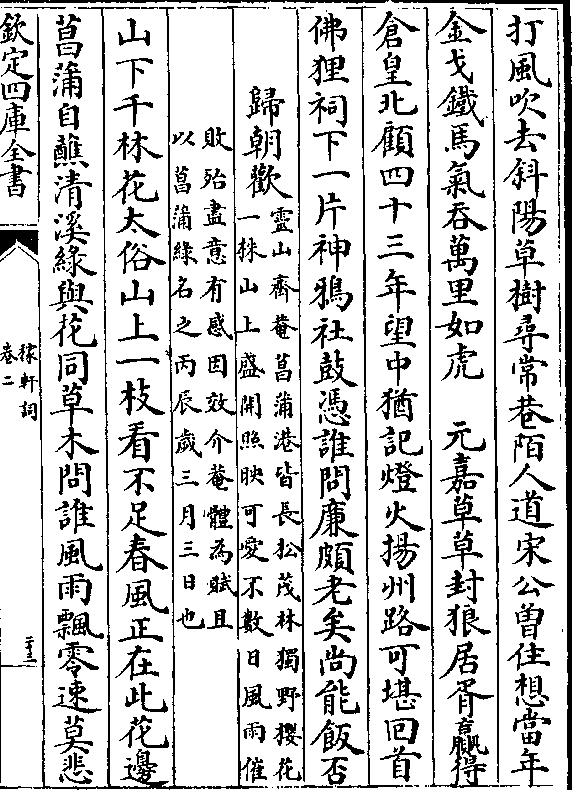 打風吹去斜陽草樹尋常巷陌人道宋公曾住想當年
金戈鐵馬氣吞萬里如虎　元嘉草草封狼居胥贏得
倉皇北顧四十三年望中猶記燈火揚州路可堪回首
佛狸祠下一片神鴉社鼓憑誰問廉頗老矣尚能飯否
歸朝歡
靈山齊菴菖蒲港皆長松茂林獨野櫻花
一株山上盛開照映可愛不數日風雨催
敗殆盡意有感因效介菴體為賦且
以菖蒲緑名之丙辰歲三月三日也
山下千林花太俗山上一枝看不足春風正在此花邊
菖蒲自蘸清溪緑與花同草木問誰風雨飄零速莫悲
欽定四庫全書
稼軒詞
卷二